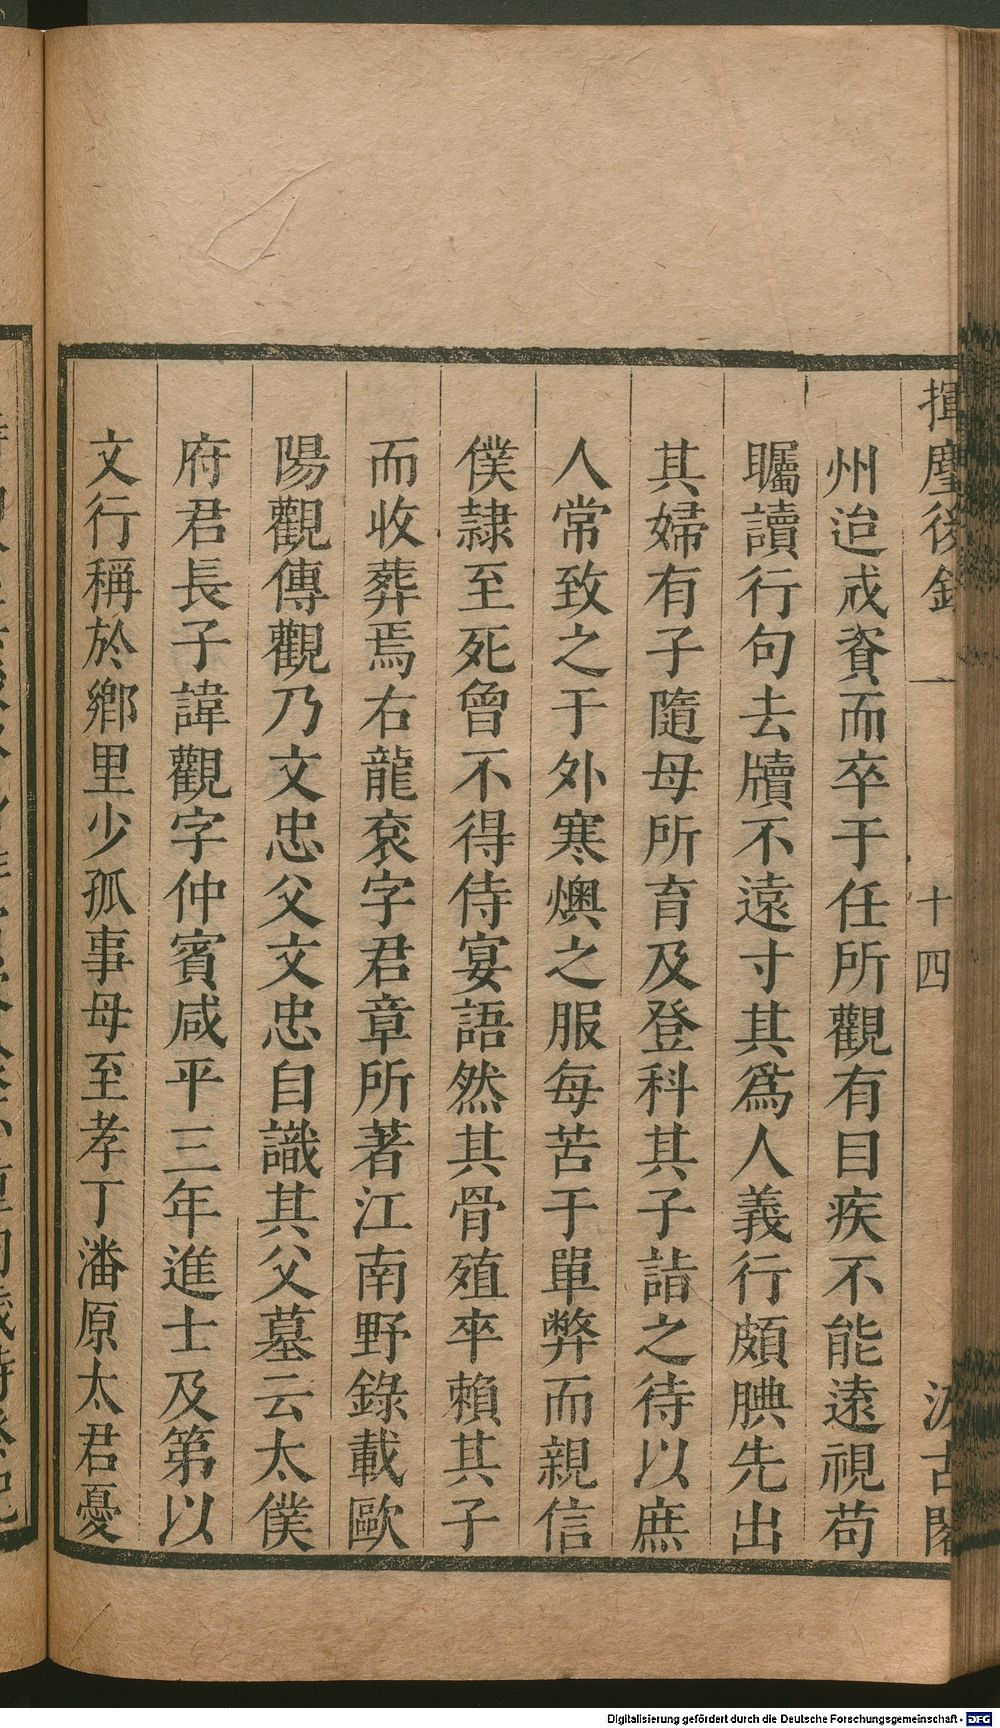 揮麈後錄 一 十四 汲古閣
州迨戒資而卒于任所觀有目疾不能遠視苟
矚讀行句去牘不遠寸其爲人義行頗腆先出
其婦有子隨母所育及登科其子詣之待以庶
人常致之于外寒燠之服每苦于單弊而親信
僕隷至死曾不得侍宴語然其骨殖卒賴其子
而收葬焉右龍衮字君章所著江南野錄載歐
陽觀傳觀乃文忠父文忠自識其父墓云太僕
府君長子諱觀字仲賓咸平三年進士及第以
文行稱於鄉里少孤事母至孝丁潘原太君憂
Digitalisierung gefördert durch die Deutsche Forschungsgemeinschaft - DFG